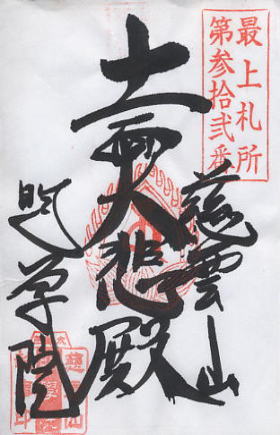 最上札所
第参拾弐番
慈雲山
十一面大悲殿
明学院